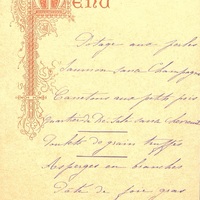 Menu
Potage aux perles
Saumon sauce Champagne
Canetons aux petits pois
Quartier de Pré-Salé sauce
Poulets de grains truffés
Asperges en branches
Pâté de foie gras